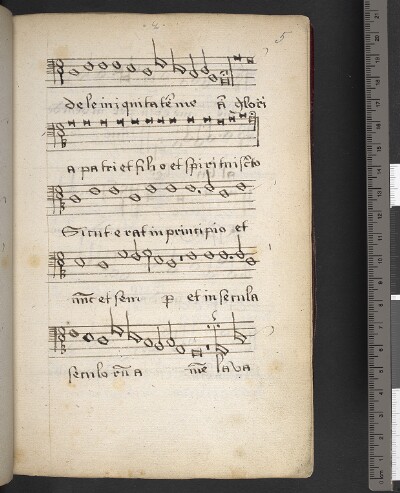 5
dele iniquitatē meā Glori
a patri et filio et spiritui scto
Sicut erat in principio et
nūc et sem p et in secula
seculorū a mē lava